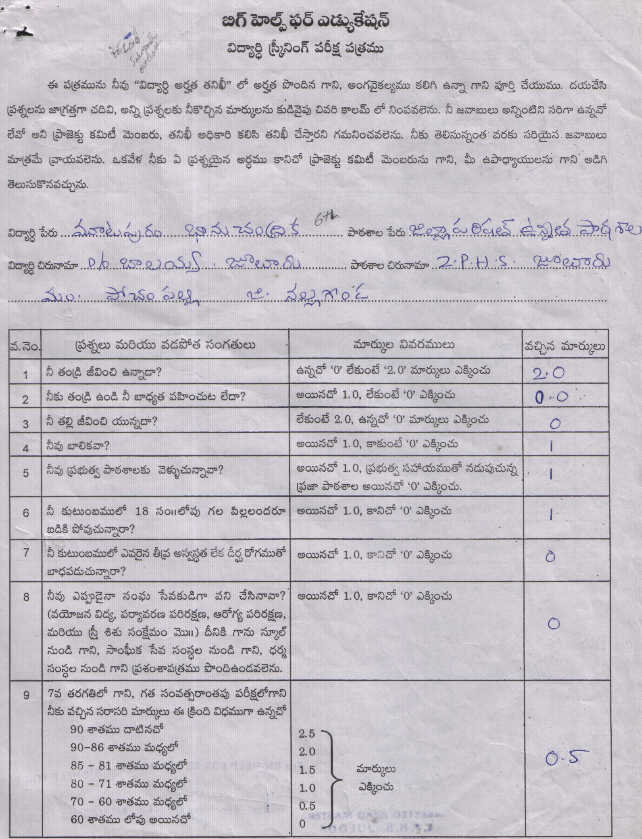 బిగ్ హెల్ప్ ఫర్ ఎడ్యుకేషన్
విద్యార్థి స్క్రీనింగ్ పరీక్ష పత్రము
ఈ పత్రమును నీవు "విద్యార్థి అర్హత తనిఖీ" లో అర్హత పొందిన గాని, అంగవైకల్యము కలిగి ఉన్నా గాని పూర్తి చేయుము. దయచేసి
ప్రశ్నలను జాగ్రత్తగా చదివి, అన్ని ప్రశ్నలకు నీకొచ్చిన మార్కులను కుడివైపు చివరి కాలమ్ లో నింపవలెను. నీ జవాబులు అన్నింటిని సరిగా ఉన్నదో
లేవో అని ప్రాజెక్టు కమిటీ మెంబరు, తనిఖీ అధికారి కలిసి తనిఖీ చేస్తారని గమనించవలెను. నీకు తెలిసినంత వరకు సరియైన జవాబులు
మాత్రమే వ్రాయవలెను. ఒకవేళ నీకు ఏ ప్రశ్నయైన అర్థము కానిచో ప్రాజెక్టు కమిటీ మెంబరును గాని, మీ ఉపాధ్యాయులను గాని అడిగి
తెలుసుకొనవచ్చును.
విద్యార్థి పేరు భానుచంద్రిక 6th పాఠశాల పేరు జిల్లాపరిషత్ ఉన్నత పాఠశాల
విద్యార్థి చిరునామా బాలయ్య జూలూరు పాఠశాల చిరునామా Z.P.H.S. జూలూరు
మం. పోచంపల్లి జి. నల్లగొండ
వ.నెం. ప్రశ్నలు మరియు వడపోత సంగతులు మార్కుల వివరములు వచ్చిన మార్కులు
1 నీ తండ్రి జీవించి ఉన్నాడా? ఉన్నచో '0' లేకుంటే '2.0' మార్కులు ఎక్కించు 2.0
2 నీకు తండ్రి ఉండి నీ బాధ్యత వహించుట లేదా? అయినచో 1.0, లేకుంటే '0' ఎక్కించు 0.0
3 నీ తల్లి జీవించి యున్నదా? లేకుంటే 2.0, ఉన్నచో '0' మార్కులు ఎక్కించు 0
4 నీవు బాలికవా? అయినచో 1.0, కాకుంటే '0' ఎక్కించు 1
5 నీవు ప్రభుత్వ పాఠశాలకు వెళ్ళుచున్నావా? అయినచో 1.0, ప్రభుత్వ సహాయముతో నడుపుచున్న 1
ప్రజా పాఠశాల అయినచో '0' ఎక్కించు.
6 నీ కుటుంబములో 18 సం॥లోపు గల పిల్లలందరూ అయినచో 1.0, కానిచో '0' ఎక్కించు 1
బడికి పోవుచున్నారా?
7 నీ కుటుంబములో ఎవరైన తీవ్ర అస్వస్థత లేక దీర్ఘ రోగముతో అయినచో 1.0, కానిచో '0' ఎక్కించు 0
బాధపడుచున్నారా?
8 నీవు ఎప్పుడైనా సంఘ సేవకుడిగా పని చేసినావా? అయినచో 1.0, కానిచో '0' ఎక్కించు 0
(వయోజన విద్య, పర్యావరణ పరిరక్షణ, ఆరోగ్య పరిరక్షణ,
మరియు స్త్రీ శిశు సంక్షేమం మొ॥) దీనికి గాను స్కూల్
నుండి గాని, సాంఘీక సేవ సంస్థల నుండి గాని, ధర్మ
సంస్థల నుండి గాని ప్రశంశాపత్రము పొందిఉండవలెను.
9 7వ తరగతిలో గాని, గత సంవత్సరాంతపు పరీక్షలోగాని
నీకు వచ్చిన సరాసరి మార్కులు ఈ క్రింది విధముగా ఉన్నచో
90 శాతము దాటినచో 2.5
90-86 శాతము మధ్యలో 2.0
85 - 81 శాతము మధ్యలో 1.5 మార్కులు 0.5
80 - 71 శాతము మధ్యలో 1.0 ఎక్కించు
70 - 60 శాతము మధ్యలో 0.5
60 శాతము లోపు అయినచో 0